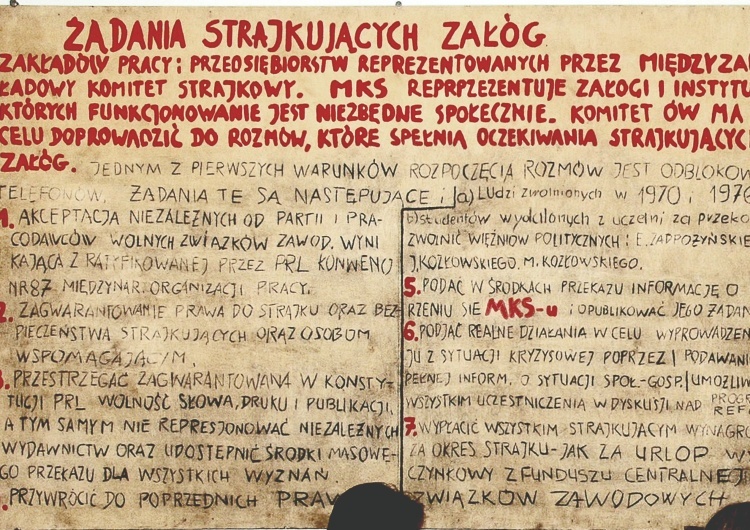 ŻĄDANIA STRAJKUJĄCYCH ZAŁÓG
ZAKŁADÓW PRACY i PRZEDSIĘBIORSTW REPREZENTOWANYCH PRZEZ MIĘDZYZA
ŁADOWY KOMITET STRAJKOWY. MKS REPRPZEZENTUJE ZAŁOGI I INSTYTU
KTÓRYCH FUNKCJONOWANIE JEST NIEZBĘDNE SPOŁECZNIE. KOMITET ÓW MA
CELU DOPROWADZIĆ DO ROZMÓW, KTÓRE SPEŁNIĄ OCZEKIWANIA STRAJKUJĄCYC
ZAŁÓG. JEDNYM Z PIERWSZYCH WARUNKÓW ROZPOCZĘCIA ROZMÓW JEST ODBLOKOW
TELEFONÓW. ŻĄDANIA TE SĄ NASTĘPUJĄCE :
1. AKCEPTACJA NIEZALEŻNYCH OD PARTII I PRA-
CODAWCÓW WOLNYCH ZWIĄZKÓW ZAWOD. WYNI
KAJĄCA Z RATYFIKOWANEJ PRZEZ PRL KONWENCJI
NR87 MIĘDZYNAR. ORGANIZACJI PRACY.
2. ZAGWARANTOWANIE PRAWA DO STRAJKU ORAZ BEZ-
PIECZEŃSTWA STRAJKUJĄCYCH ORAZ OSOBOM
WSPOMAGAJĄCYM.
3. PRZESTRZEGAĆ ZAGWARANTOWANĄ W KONSTY-
TUCJI PRL WOLNOŚĆ SŁOWA, DRUKU I PUBLIKACJI,
A TYM SAMYM NIE REPRESJONOWAĆ NIEZALEŻNYCH
WYDAWNICTW ORAZ UDOSTĘPNIĆ ŚRODKI MASOWE-
GO PRZEKAZU DLA WSZYSTKICH WYZNAŃ.
. PRZYWRÓCIĆ DO POPRZEDNICH PRAW
a) LUdzi zwolnionych w 1970 i 1976
b) studentów wydalonych z uczelni za przeko
ZWOLNIĆ WIĘŹNIÓW POLITYCZNYCH : E. ZADROŻYŃSKIE
J. KOZŁOWSKIEGO. M. KOZŁOWSKIEGO.
5. PODAĆ W ŚRODKACH PRZEKAZU INFORMACJĘ O
RZENIU SIĘ MKS-u i OPUBLIKOWAĆ JEGO ŻĄDAN
6. PODJĄĆ REALNE DZIAŁANIA W CELU WYPROWADZEN
JU Z SYTUACJI KRYZYSOWEJ POPRZEZ | PODAWANI
PEŁNEJ INFORM. O SYTUACJI SPOŁ-GOSP. | UMOŻLIW
WSZYSTKIM UCZESTNICZENIA W DYSKUSJI NAD PROGR
REF
7. WYPŁACIĆ WSZYSTKIM STRAJKUJĄCYM WYNAGRO
ZA OKRES STRAJKU-JAK ZA URLOP WY
CZYNKOWY Z FUNDUSZU CENTRALNEJ
ZWIĄZKÓW ZAWODOWYCH